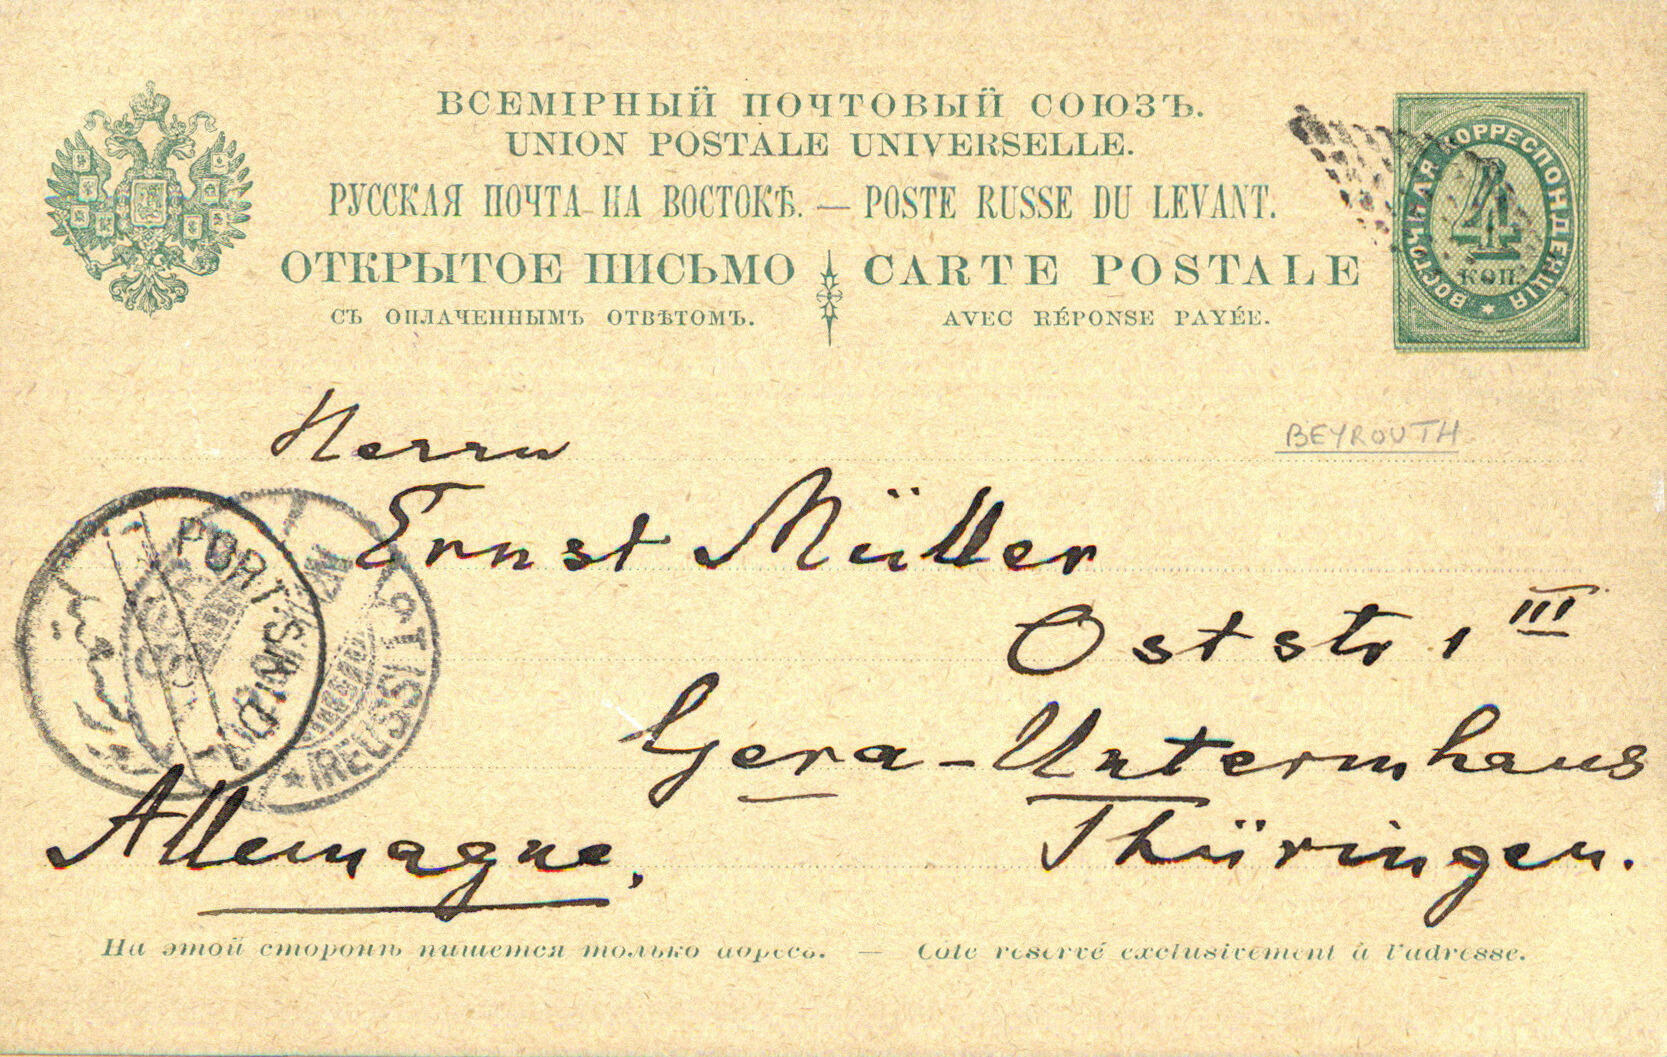 ВСЕМІРНЫЙ ПОЧТОВЫЙ СОЮЗЪ.
UNION POSTALE UNIVERSELLE.
РУССКАЯ ПОЧТА НА ВОСТОКѢ. — POSTE RUSSE DU LEVANT.
ОТКРЫТОЕ ПИСЬМО CARTE POSTALE
СЪ ОПЛАЧЕННЫМЪ ОТВѢТОМЪ. AVEC RÉPONSE PAYÉE.
ВОСТОЧНАЯ КОРРЕСПОНДЕНЦІЯ
4
КОП.
BEYROUTH
Herrn
Ernst Müller
Oststr 1 III
Gera-Untermhaus
Thüringen.
Allemagne,
PORT-SAID
(REUSS)
На этой сторонѣ пишется только адресъ. — Côté reservé exclusivement à l'adresse.